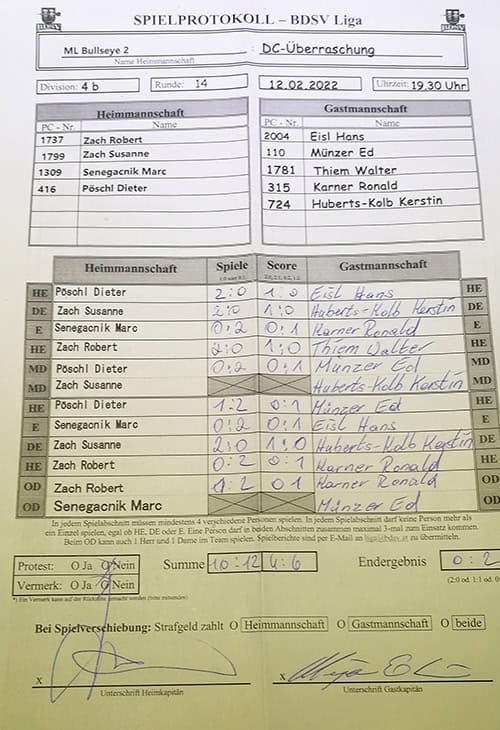 BDSV
SPIELPROTOKOLL – BDSV Liga
BDSV
ML Bullseye 2 : DC-Überraschung
Name Heimmannschaft
Division: 4 b Runde: 14 12.02.2022 Uhrzeit: 19.30 Uhr
Heimmannschaft
PC - Nr. Name
1737 Zach Robert
1799 Zach Susanne
1309 Senegacnik Marc
416 Pöschl Dieter
Gastmannschaft
PC - Nr. Name
2004 Eisl Hans
110 Münzer Ed
1781 Thiem Walter
315 Karner Ronald
724 Huberts-Kolb Kerstin
Heimmannschaft Spiele Score Gastmannschaft
HE Pöschl Dieter 2:0 1:0 Eisl Hans HE
DE Zach Susanne 2:0 1:0 Huberts-Kolb Kerstin DE
E Senegacnik Marc 0:2 0:1 Karner Ronald E
HE Zach Robert 2:0 1:0 Thiem Walter HE
MD Pöschl Dieter 0:2 0:1 Münzer Ed MD
MD Zach Susanne Huberts-Kolb Kerstin MD
HE Pöschl Dieter 1:2 0:1 Münzer Ed HE
E Senegacnik Marc 0:2 0:1 Eisl Hans E
DE Zach Susanne 2:0 1:0 Huberts-Kolb Kerstin DE
HE Zach Robert 0:2 0:1 Karner Ronald HE
OD Zach Robert 1:2 0:1 Karner Ronald OD
OD Senegacnik Marc Münzer Ed OD
In jedem Spielabschnitt müssen mindestens 4 verschiedene Personen spielen. In jedem Spielabschnitt darf keine Person mehr als
ein Einzel spielen, egal ob HE, DE oder E. Eine Person darf in beiden Abschnitten zusammen maximal 3-mal zum Einsatz kommen.
Beim OD kann auch 1 Herr und 1 Dame im Team spielen. Spielberichte sind per E-Mail an liga@bdsv.at zu übermitteln.
Protest: O Ja O Nein Summe 10:12 4:6 Endergebnis 0:2
Vermerk: O Ja O Nein (2:0 od. 1:1 od. 0:
*) Ein Vermerk kann auf der Rückseite gemacht werden (bitte ankreuzen)
Bei Spielverschiebung: Strafgeld zahlt O Heimmannschaft O Gastmannschaft O beide
X X
Unterschrift Heimkapitän Unterschrift Gastkapitän